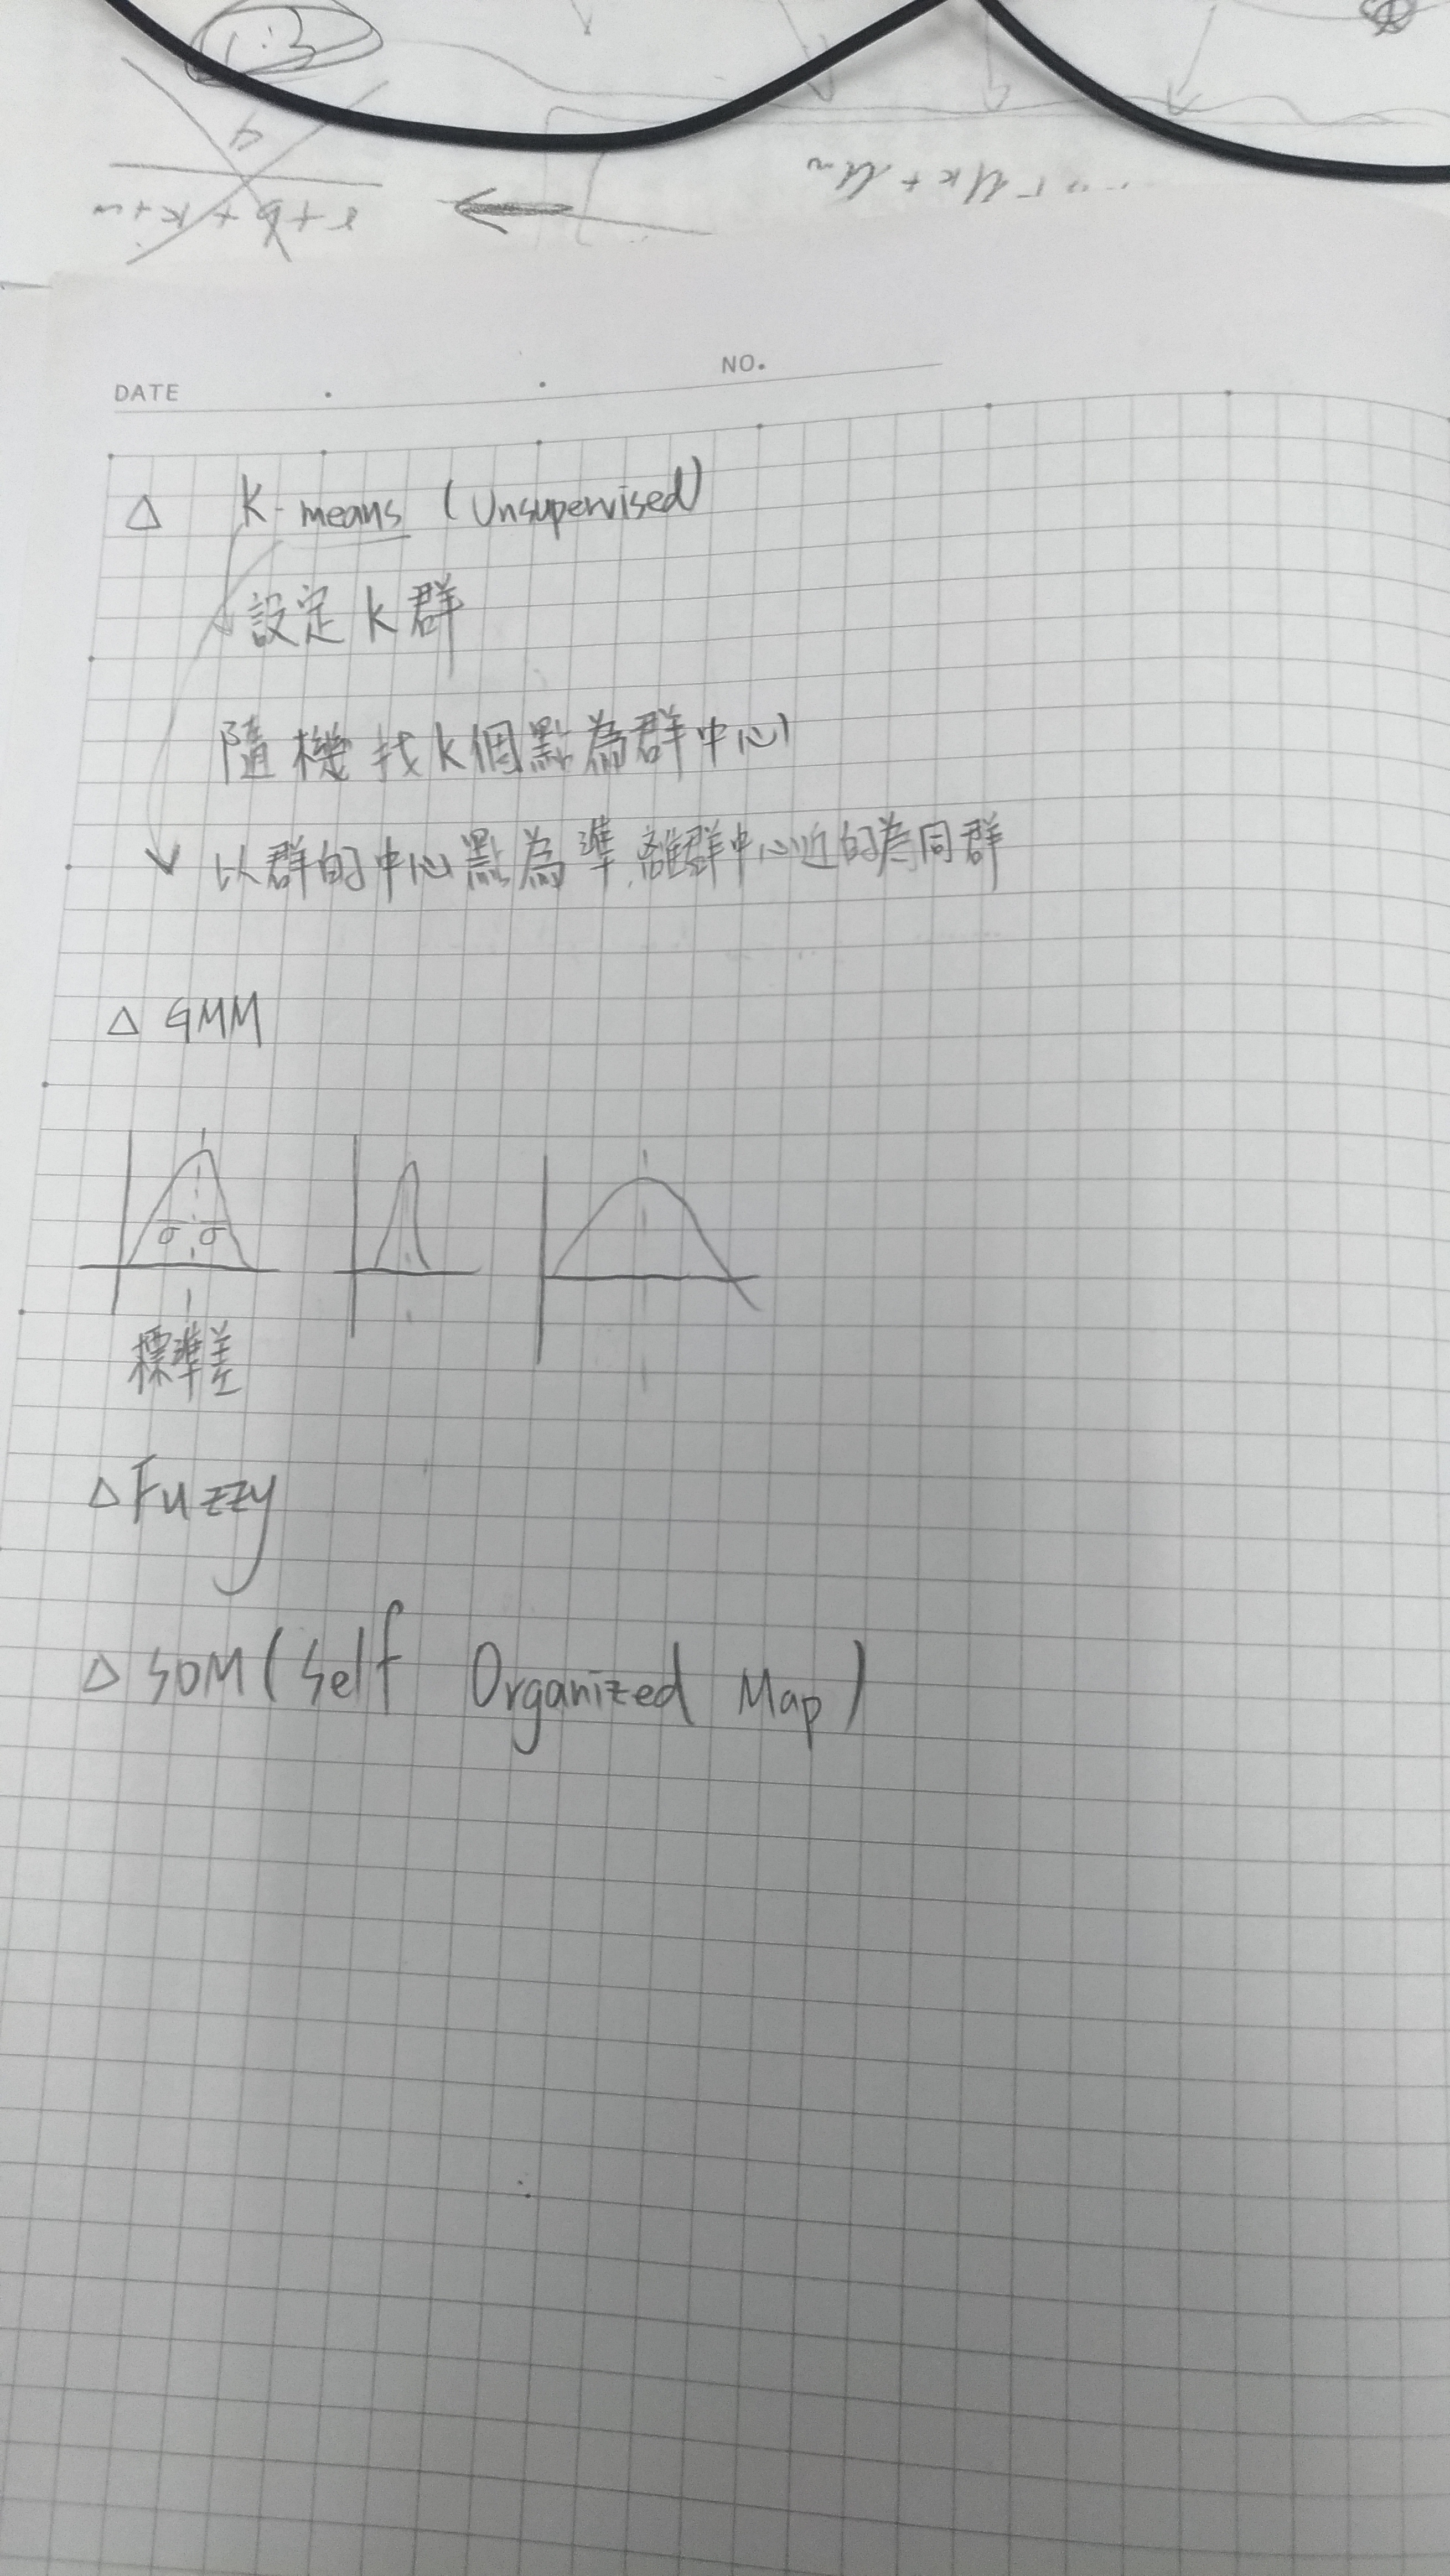 DATE
NO.
△ K-means (Unsupervised)
設定 k 群
隨機找k個點為群中心
以群的中心點為準,離群中心近的為同群
△ GMM
σ σ
標準差
△ Fuzzy
△ SOM (Self Organized Map)